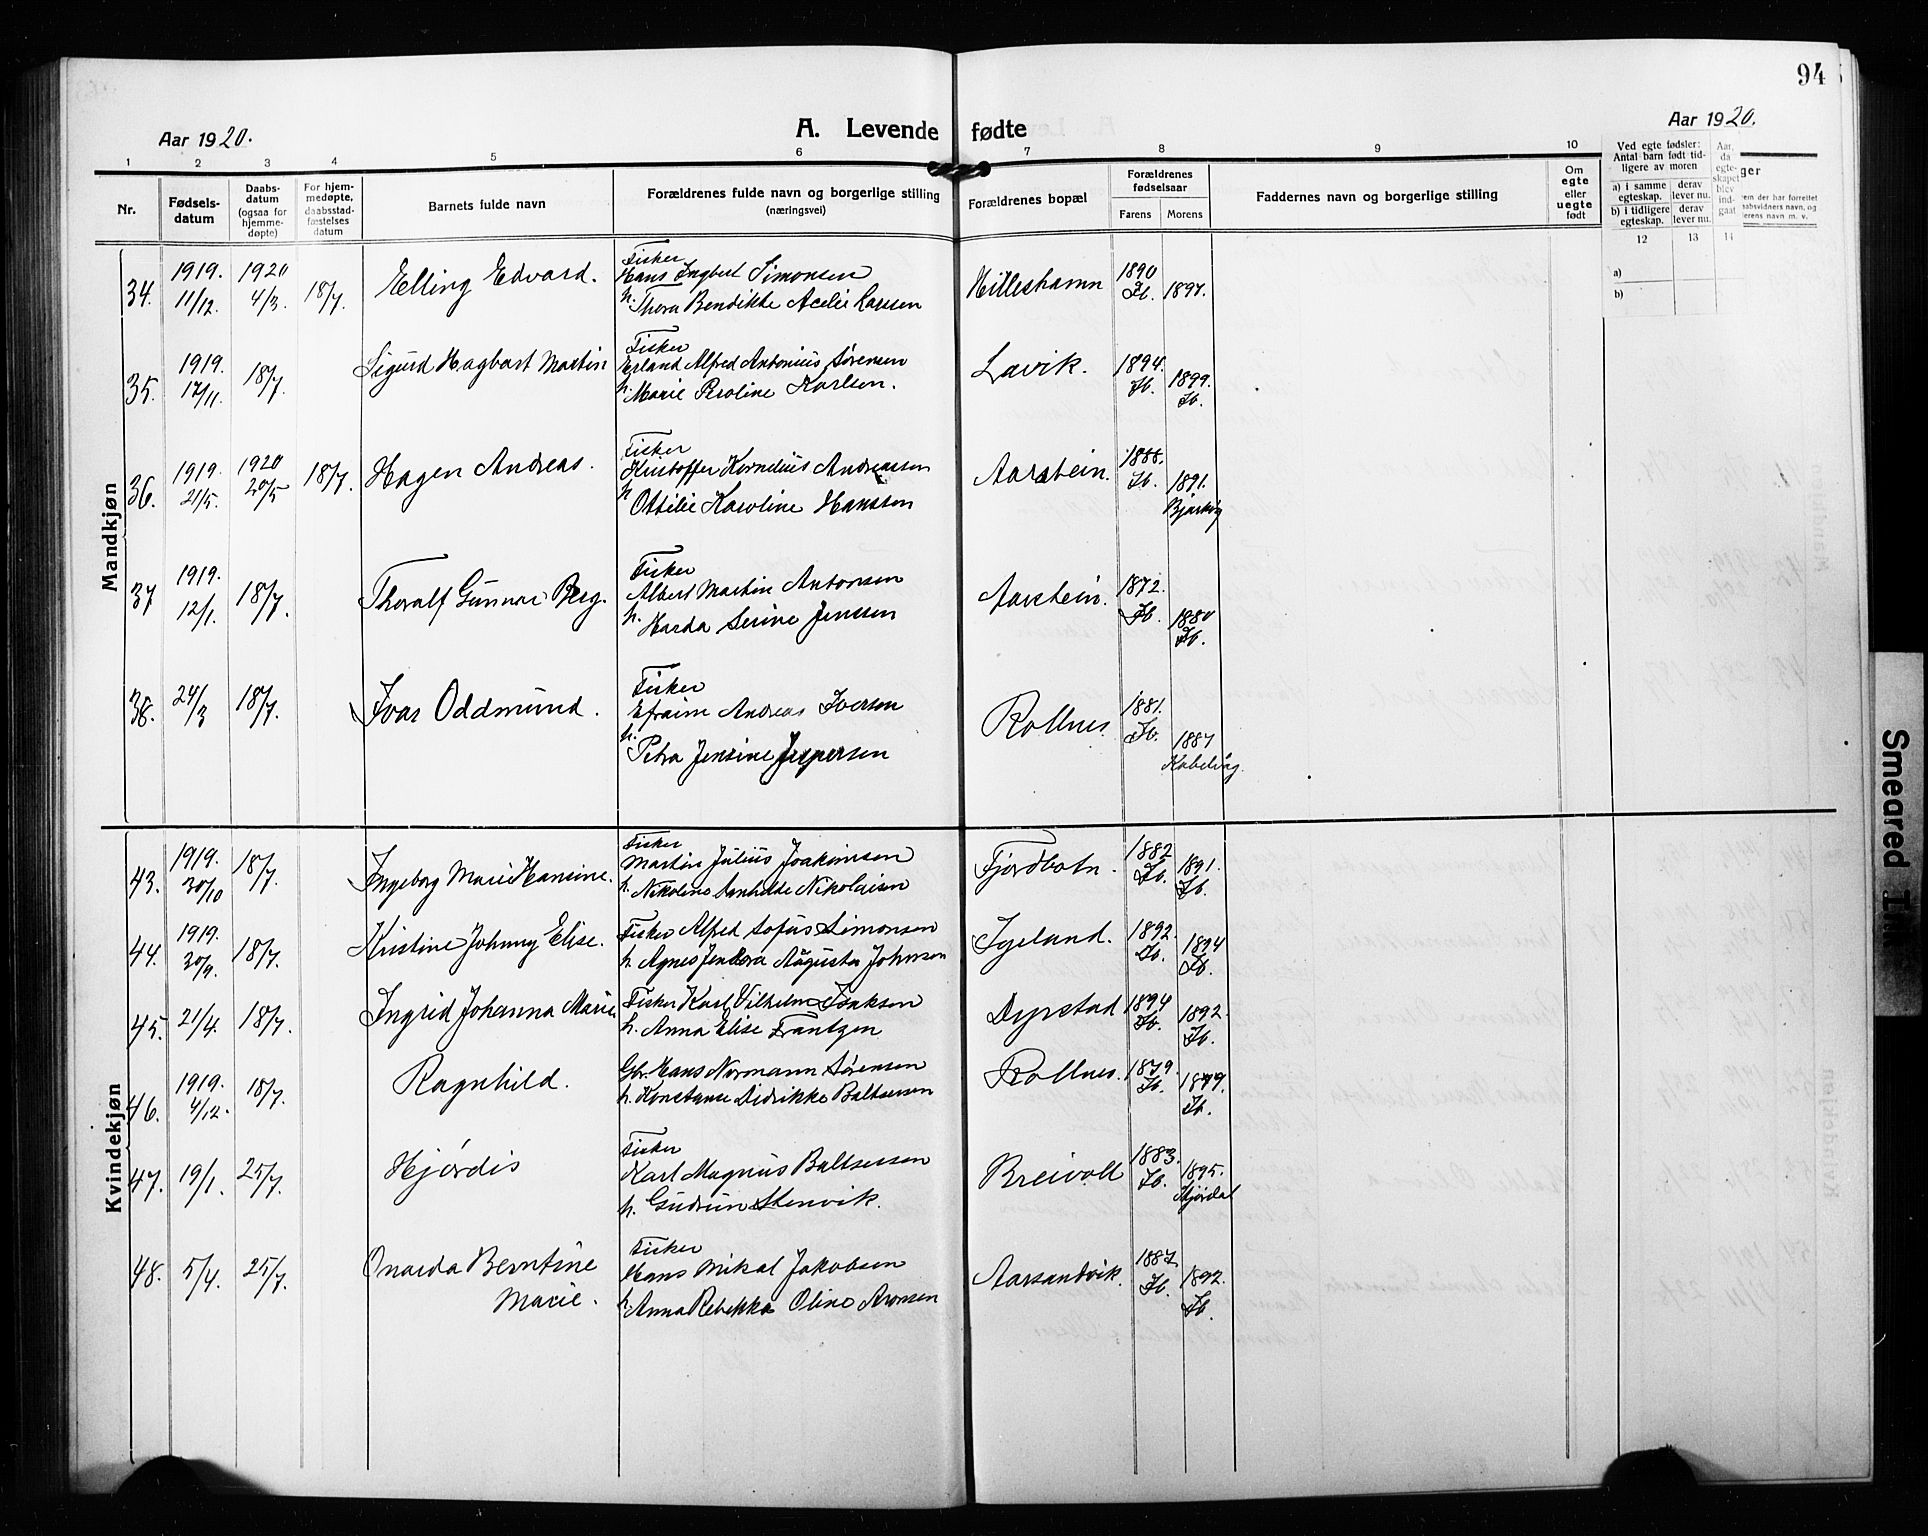 94
Aar 1920.
A. Levende fødte
Aar 1920.
1 2 3 4 5 6 7 8 9 10
Nr.
Fødsels-
datum
Daabs-
datum
(ogsaa for
hjemme-
døpte)
For hjem-
medøpte,
daabsstad-
fæstelses
datum
Barnets fulde navn
Forældrenes fulde navn og borgerlige stilling
(næringsvei)
Forældrenes bopæl
Forældrenes
fødselsaar
Farens Morens
Faddernes navn og borgerlige stilling
Om
egte
eller
uegte
født
Ved egte fødsler:
Antal barn født tid-
ligere av moren
a) i samme
egteskap.
derav
lever nu.
b) i tidligere
egteskap.
derav
lever nu.
Aar,
da
egte-
skapet
blev
ind-
gaat
12 13 14
a)
b)
Mandkjøn
34. 1919. 11/12. 1920 4/3. 18/7. Elling Edvard.
Fisker
Hans Ingbert Simonsen
h. Thora Bendikke Acelie Larssen
Hilleshamn 1890 Ib. 1897.
35. 1919. 17/11. 18/7. Sigurd Hagbart Martin
Fisker
Erland Alfred Antonius Sørensen
h. Marie Peroline Karlsen.
Lavik. 1894. Ib. 1899. Ib.
36. 1919. 21/5. 1920 20/5 18/7. Hagen Andreas.
Fisker
Kristoffer Kornelius Andreassen
h. Ottilie Karoline Hanssen
Aarstein. 1888. Ib. 1891. Bjarkøy
37 1919. 12/1. 18/7. Thoralf Gunnar Berg.
Fisker
Albert Martin Antonsen
h. Harda Serine Jenssen
Aarstein. 1872. Ib. 1880 Ib.
38. 24/3 18/7. Ivar Oddmund.
Fisker
Efraim Andreas Iversen
h. Petra Jensine Jespersen
Rollnes. 1881. Ib. 1887 Kabelvåg.
Kvindekjøn
43. 1919. 30/10 18/7. Ingeborg Marie Hansine.
Fisker
Martin Julius Joakimsen
h. Nikoline Nikolaisen
Fjordbotn. 1882 Ib. 1891. Ib.
44. 1919. 30/9. 18/7. Kristine Johnny Elise.
Fisker Alfred Sofus Simonsen
h. Agnes Augusta Johnsen
Igeland. 1892. Ib. 1894 Ib.
45. 21/4. 18/7. Ingrid Johanna Marie
Fisker Karl Vilhelm Isaksen
h. Anna Elise Frantzen
Dyrstad 1894 Ib. 1892. Ib.
46. 1919. 4/12. 18/7. Ragnhild.
Gbr. Hans Normann Sørensen
h. Konstanse Didrikke Baltsersen
Rollnes. 1879. Ib. 1879. Ib.
47. 19/1. 25/7. Hjørdis
Fisker
Karl Magnus Baltsersen
h. Gudrun Stenvik.
Breivoll 1883. Ib. 1895. Stjørdal
48. 5/4. 25/7. Onarda Berntine
Marie.
Fisker
Hans Mikal Jakobsen
h. Anna Rebekka Oline Aronsen
Aarsandvik. 1887 Ib. 1892. Ib.
Smeared Ink